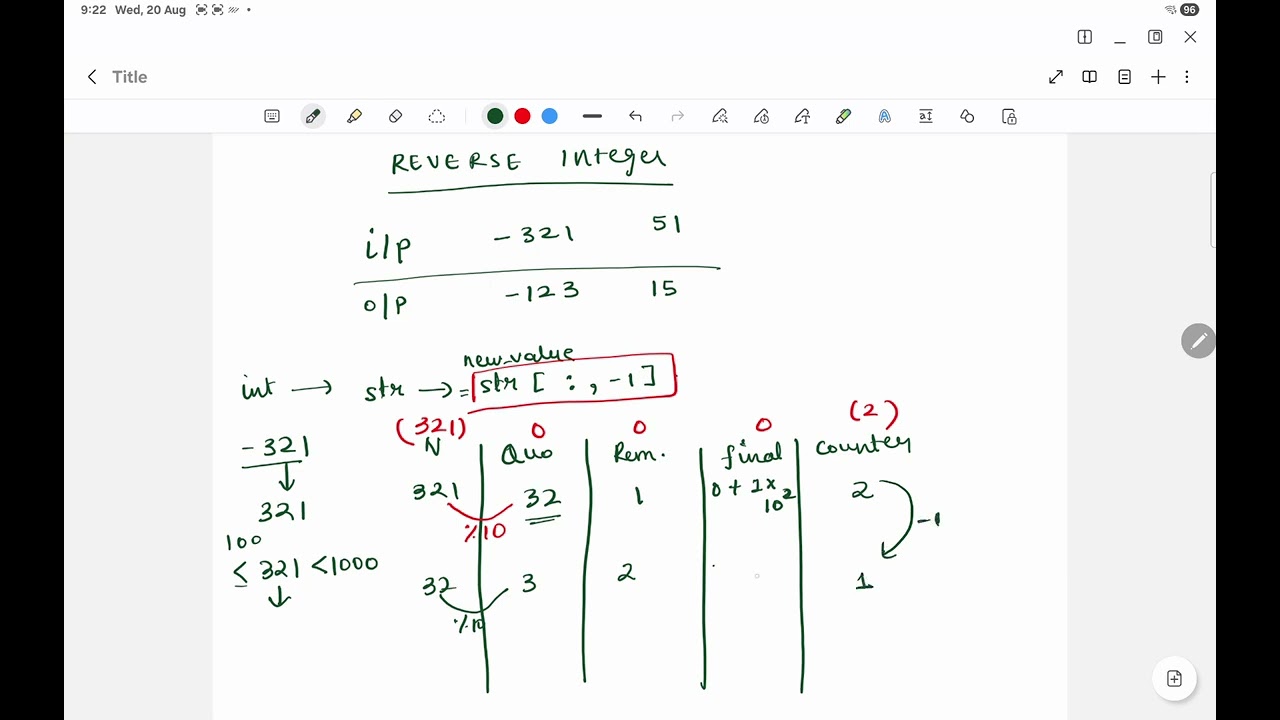 9:22 Wed, 20 Aug
96
Title
REVERSE Integer
i/p -321 51
o/p -123 15
new_value
int → str → = str [ : , -1 ]
(321) 0 0 0 (2)
N Quo Rem. final counter
-321
321 32 1 0 + 1x10² 2
321
%10
-1
100
≤ 321 < 1000
32 3 2 1
%10